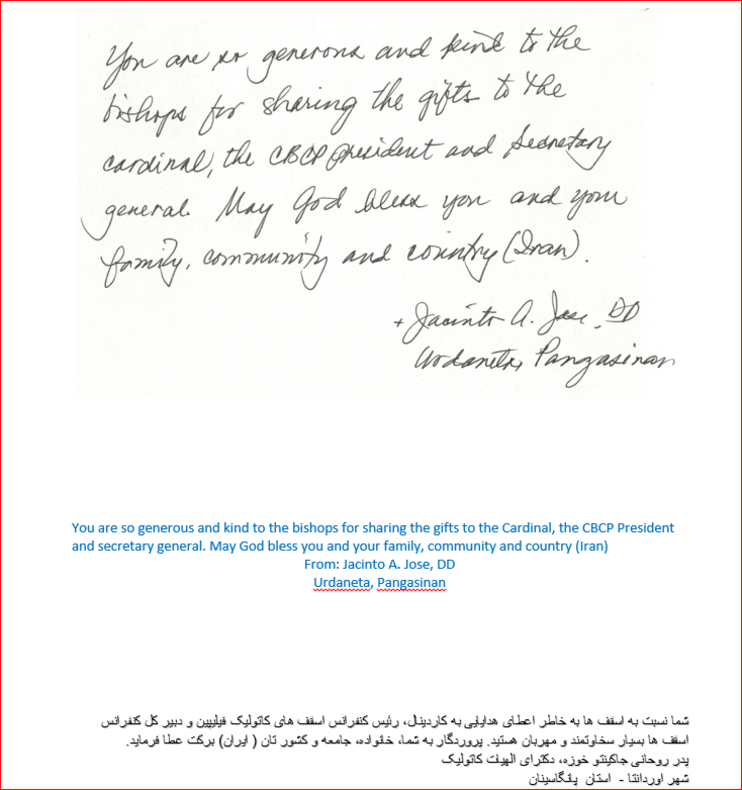 You are so generous and kind to the
bishops for sharing the gifts to the
cardinal, the CBCP president and Secretary
general. May God bless you and your
family, community and country (Iran).
+ Jacinto A. Jose, DD
Urdaneta, Pangasinan
You are so generous and kind to the bishops for sharing the gifts to the Cardinal, the CBCP President
and secretary general. May God bless you and your family, community and country (Iran)
From: Jacinto A. Jose, DD
Urdaneta, Pangasinan
شما نسبت به اسقف ها به خاطر اعطای هدایایی به کاردینال، رئیس کنفرانس اسقف های کاتولیک فیلیپین و دبیر کل کنفرانس
اسقف ها بسیار سخاوتمند و مهربان هستید. پروردگار به شما، خانواده، جامعه و کشور تان ( ایران) برکت عطا فرماید.
پدر روحانی جاکینتو خوزه، دکترای الهیات کاتولیک
شهر اوردانتا - استان پانگاسینان